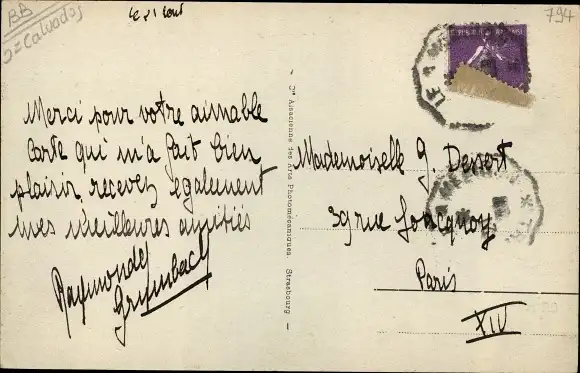 BB
D= Calvados
le 21 Aout
794
Merci pour votre aimable
Carte qui m'a fait bien
plaisir, recevez également
mes meilleures amitiés
Raymonde
Grumbach
Cie Alsacienne des Arts Photomécaniques, Strasbourg
Mademoiselle G. Dessert
39 rue Jonquoy
Paris
XIV